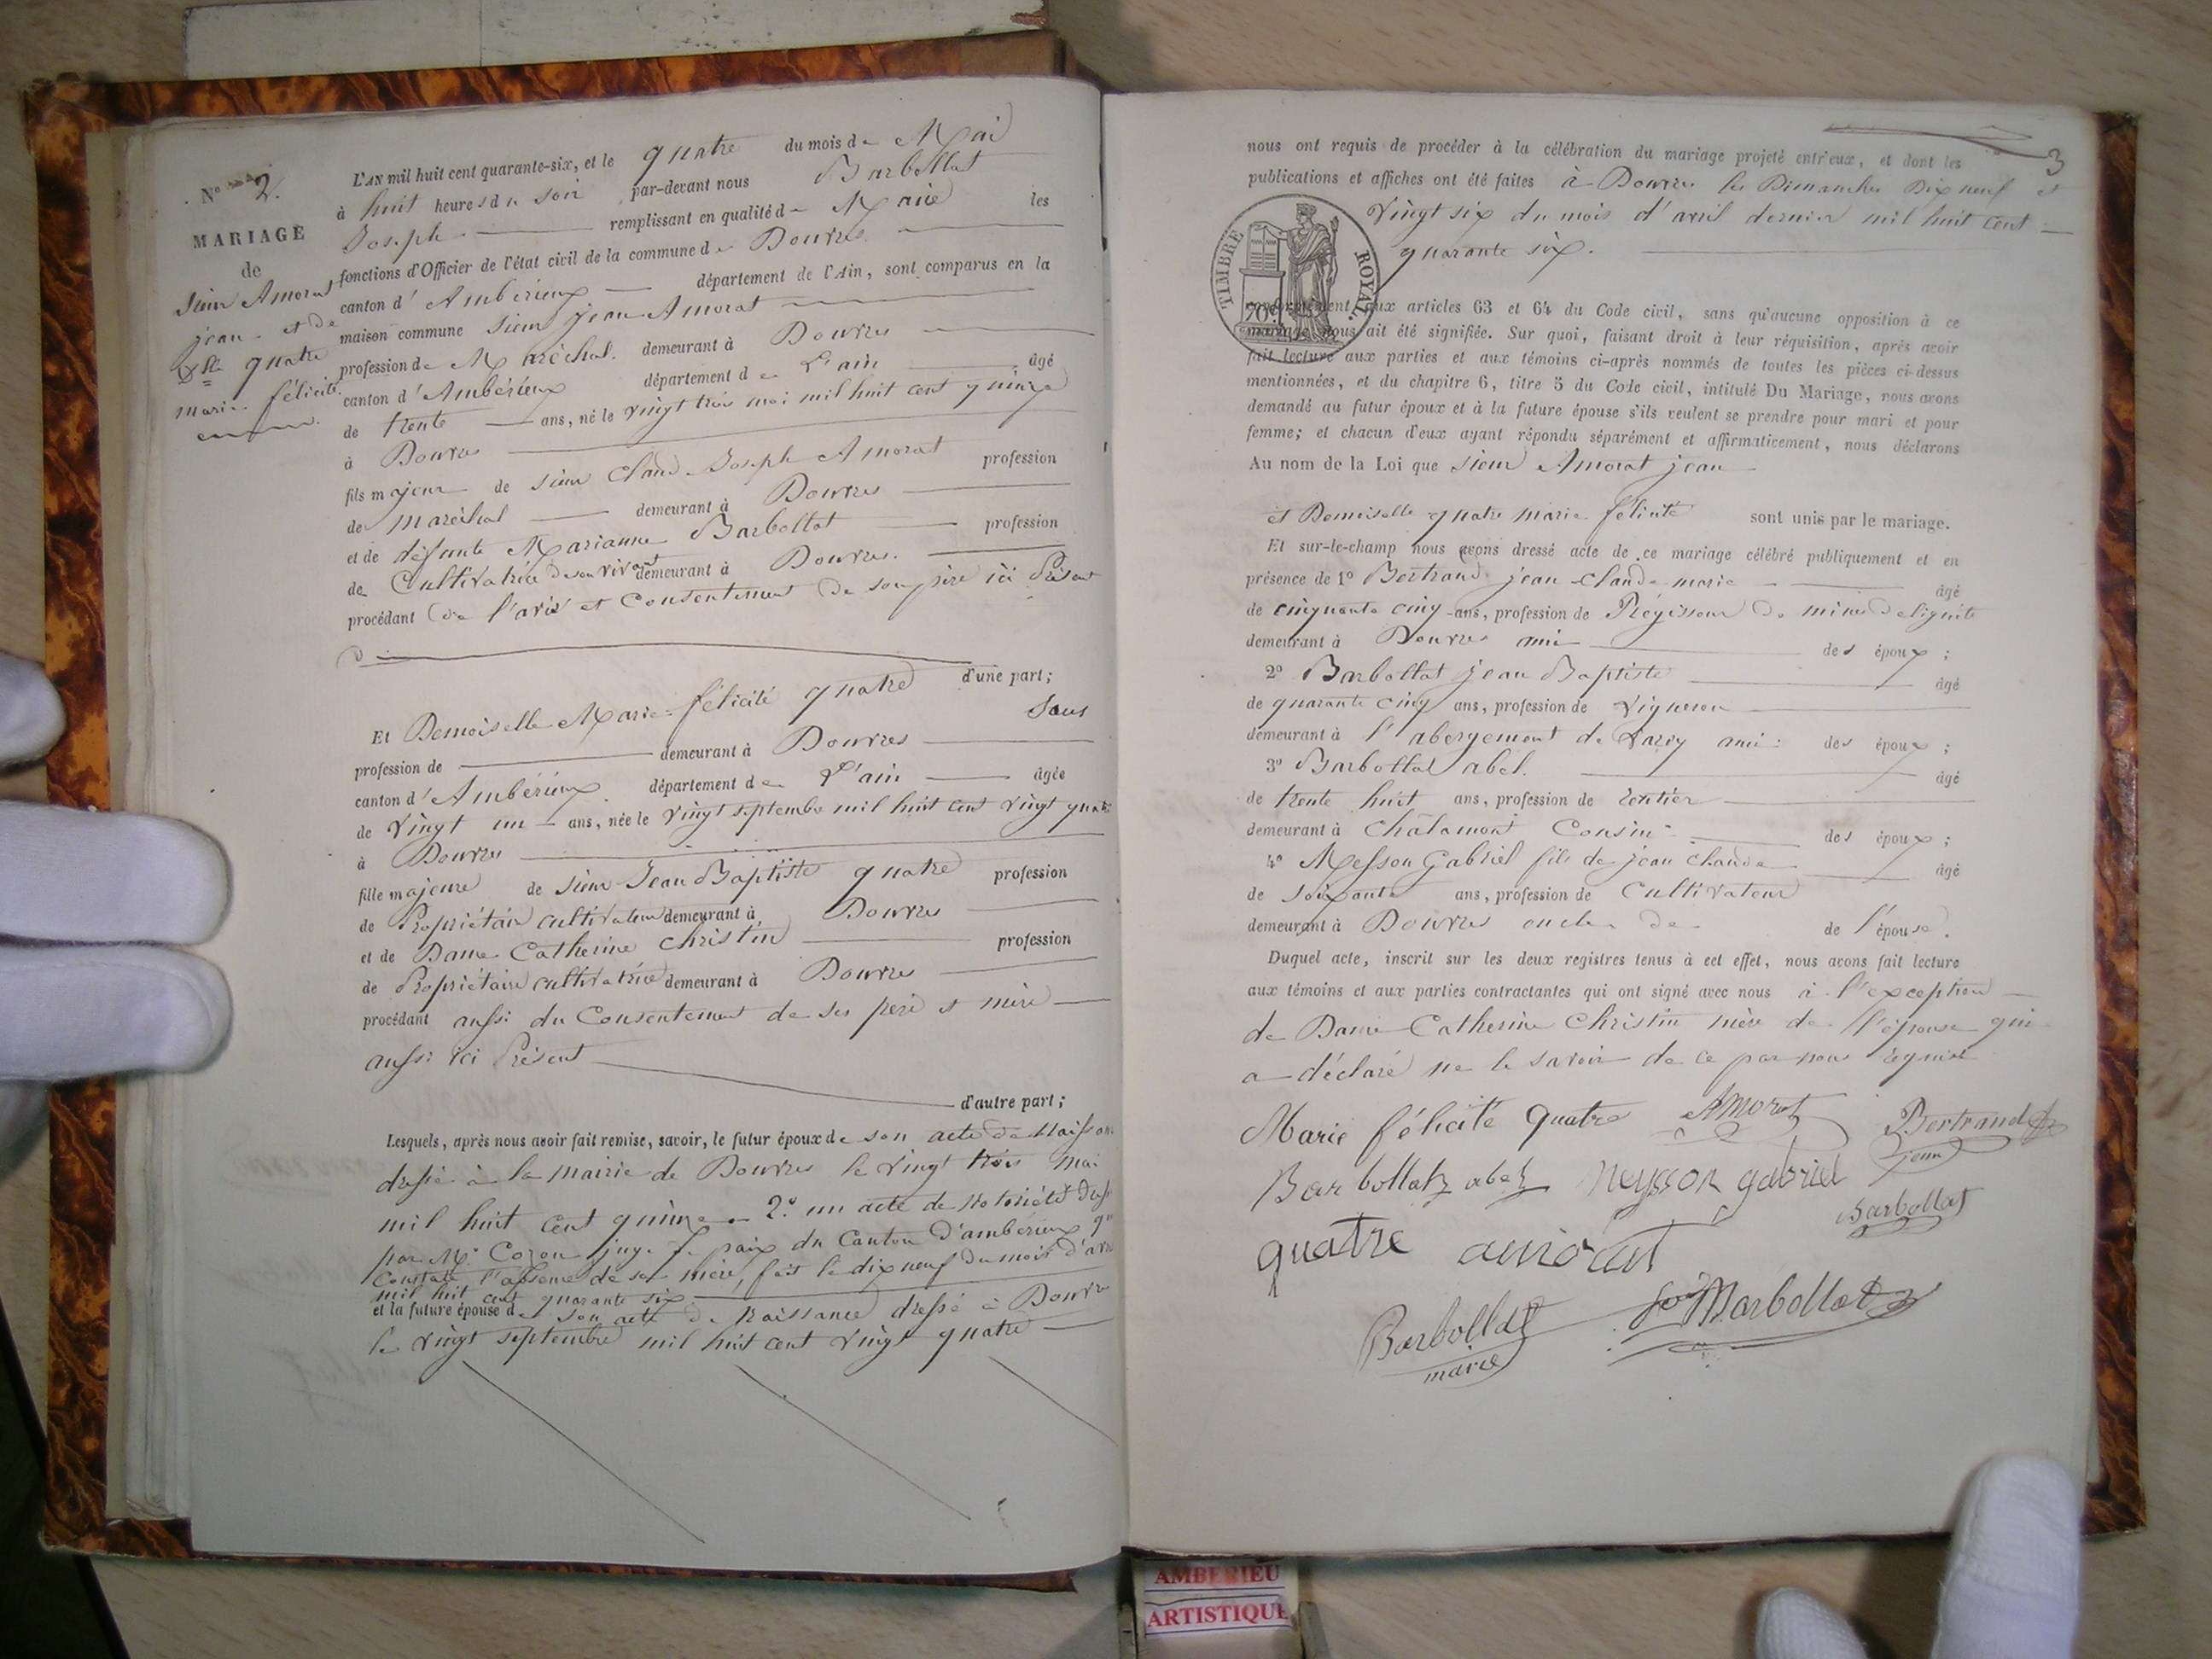 No 2.
MARIAGE
de
Sieur Amorat
jean et de
Dlle quatre
marie félicité.
L'AN mil huit cent quarante-six, et le quatre du mois de Mai
à huit heures du soir par-devant nous Barbollat
Joseph remplissant en qualité de Maire les
fonctions d'Officier de l'état civil de la commune de Douvres
canton d'Ambérieux département de l'Ain, sont comparus en la
maison commune Sieur jean Amorat
profession de Maréchal. demeurant à Douvres
canton d'Ambérieux département de L'ain âgé
de trente ans, né le vingt trois mai mil huit cent quinze
à Douvres
fils majeur de sieur Claude Joseph Amorat profession
de maréchal demeurant à Douvres
et de défunte Marianne Barbollat profession
de Cultivatrice de son vivant demeurant à Douvres.
procédant de l'avis et Consentement de son père ici Présent
d'une part;
Et Demoiselle Marie félicité quatre Sans
profession de demeurant à Douvres
canton d'Ambérieux département de L'ain âgée
de vingt un ans, née le vingt septembre mil huit cent vingt quatre
à Douvres
fille majeure de sieur Jean Baptiste quatre profession
de Propriétaire cultivateur demeurant à Douvres
et de Dame Catherine Christin profession
de Propriétaire cultivatrice demeurant à Douvres
procédant aussi du Consentement de ses père et mère
aussi ici Présent
d'autre part;
Lesquels, après nous avoir fait remise, savoir, le futur époux de son acte de Naissance
dressé à la mairie de Douvres le vingt trois mai
mil huit cent quinze 2.o un acte de Notoriété
par Mr juge de paix du Canton d'ambérieux
Constate l'absence de sa mère, fait le dix neuf du mois d'avril
mil huit cent quarante six
et la future épouse de son acte de Naissance dressé à Douvres
le vingt septembre mil huit cent vingt quatre
3
nous ont requis de procéder à la célébration du mariage projeté entr'eux, et dont les
publications et affiches ont été faites à Douvres les Dimanches Dix neuf et
vingt six du mois d'avril dernier mil huit cent
quarante six.
TIMBRE ROYAL.
70c
conformément aux articles 63 et 64 du Code civil, sans qu'aucune opposition à ce
mariage nous ait été signifiée. Sur quoi, faisant droit à leur réquisition, après avoir
fait lecture aux parties et aux témoins ci-après nommés de toutes les pièces ci-dessus
mentionnées, et du chapitre 6, titre 5 du Code civil, intitulé Du Mariage, nous avons
demandé au futur époux et à la future épouse s'ils veulent se prendre pour mari et pour
femme; et chacun d'eux ayant répondu séparément et affirmativement, nous déclarons
Au nom de la Loi que sieur Amorat jean
et Demoiselle quatre marie félicité sont unis par le mariage.
Et sur-le-champ nous avons dressé acte de ce mariage célébré publiquement et en
présence de 1o Bertrand jean Claude marie âgé
de cinquante cinq ans, profession de Régisseur de mines de lignite
demeurant à Douvres ami des époux;
2o Barbollat jean Baptiste âgé
de quarante cinq ans, profession de vigneron
demeurant à l'abergement de Varey ami des époux;
3o Barbollat abel. âgé
de trente huit ans, profession de rentier
demeurant à Châlamont Cousin des époux;
4o Messon Gabriel fils de jean Claude âgé
de soixante ans, profession de Cultivateur
demeurant à Douvres oncle de de l'épouse.
Duquel acte, inscrit sur les deux registres tenus à cet effet, nous avons fait lecture
aux témoins et aux parties contractantes qui ont signé avec nous à l'exception
de Dame Catherine Christin mère de l'épouse qui
a déclaré ne le savoir de ce par nous requise
Marie félicité quatre Amorat Bertrand
jeune
Barbollat abel neysson gabriel
Barbollat
quatre amorat
Barbollat
maire
Barbollat
AMBERIEU
ARTISTIQUE